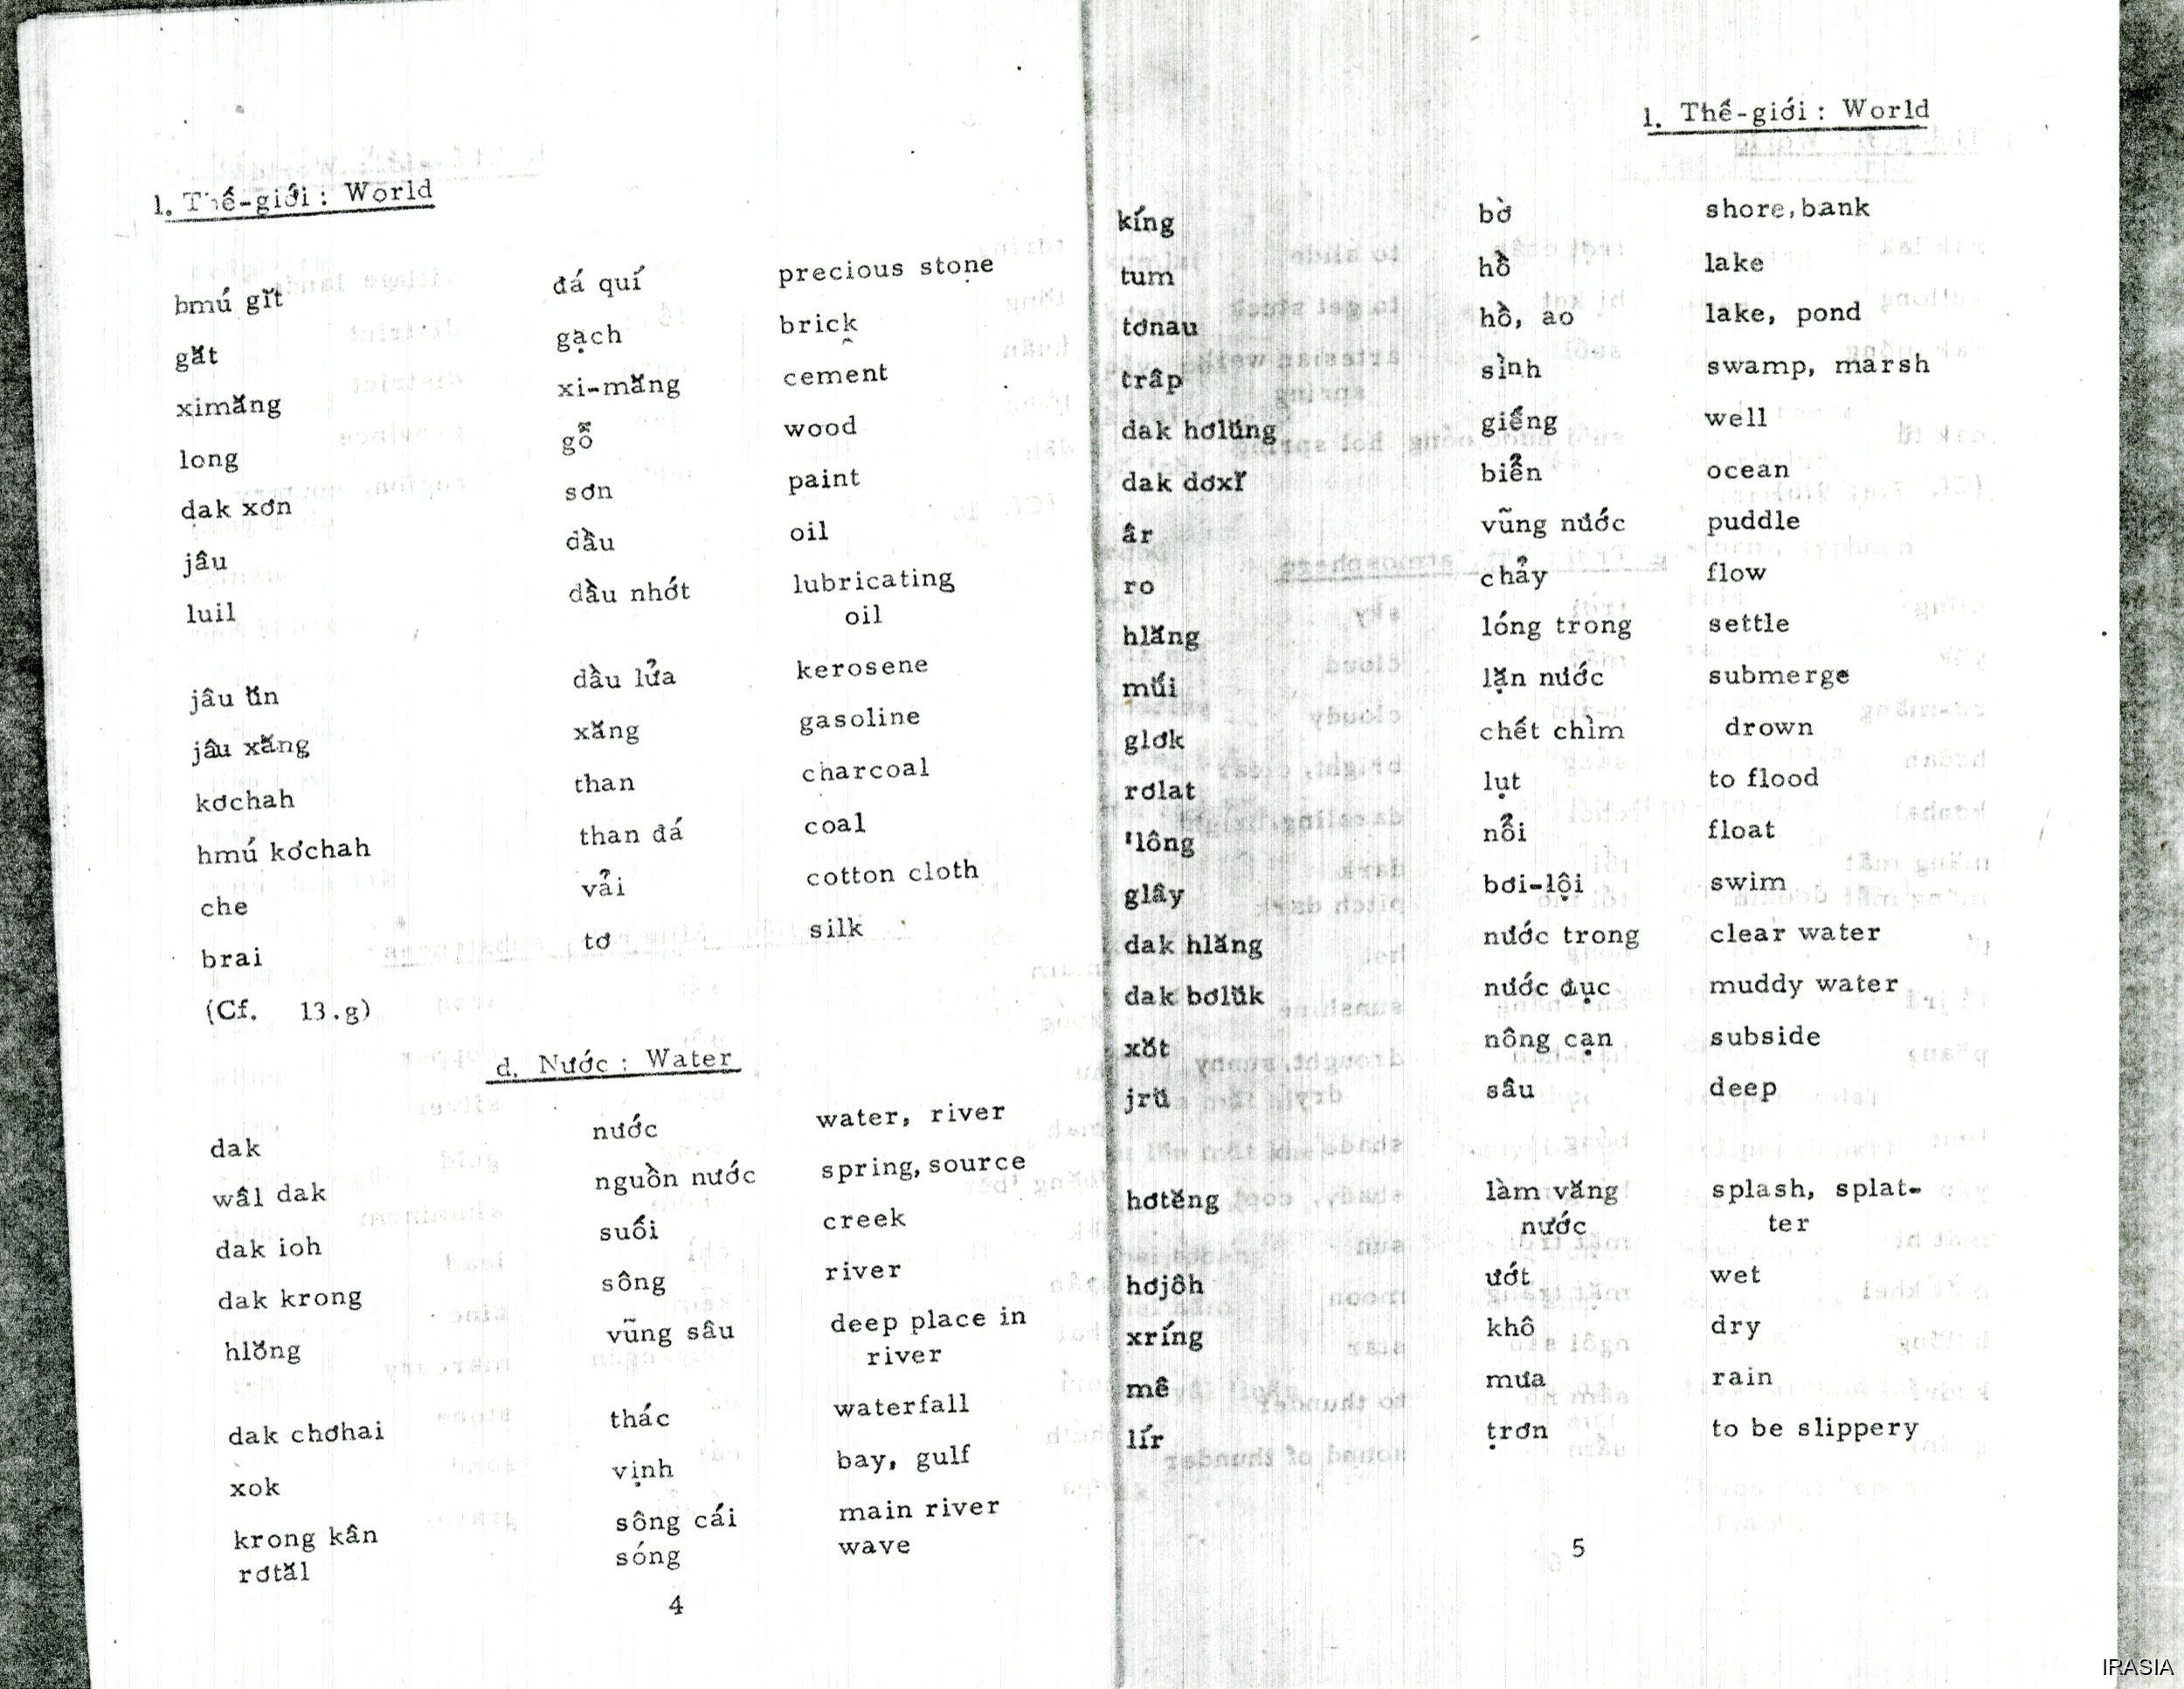 1. Thế-giới : World
bmú gĭt đá quí precious stone
găt gạch brick
ximăng xi-măng cement
long gỗ wood
dak xơn sơn paint
jâu dầu oil
luil dầu nhớt lubricating
oil
jâu ŭn dầu lửa kerosene
jâu xăng xăng gasoline
kơchah than charcoal
hmú kơchah than đá coal
che vải cotton cloth
brai tơ silk
(Cf. 13.g)
d. Nước : Water
dak nước water, river
wâl dak nguồn nước spring, source
dak ioh suối creek
dak krong sông river
hlŏng vũng sâu deep place in
river
dak chơhai thác waterfall
xok vịnh bay, gulf
krong kân sông cái main river
rơtăl sóng wave
4
1. Thế-giới : World
kíng bờ shore, bank
tum hồ lake
tơnau hồ, ao lake, pond
trâp sình swamp, marsh
dak hơlŭng giếng well
dak dơxĭ biển ocean
âr vũng nước puddle
ro chảy flow
hlăng lóng trong settle
mŭi lặn nước submerge
glơk chết chìm drown
rơlat lụt to flood
'lông nổi float
glây bơi-lội swim
dak hlăng nước trong clear water
dak bơlŭk nước đục muddy water
xŏt nông cạn subside
jrŭ sâu deep
hơtĕng làm văng splash, splat-
nước ter
hơjôh ướt wet
xríng khô dry
mê mưa rain
lír trơn to be slippery
5
IRASIA